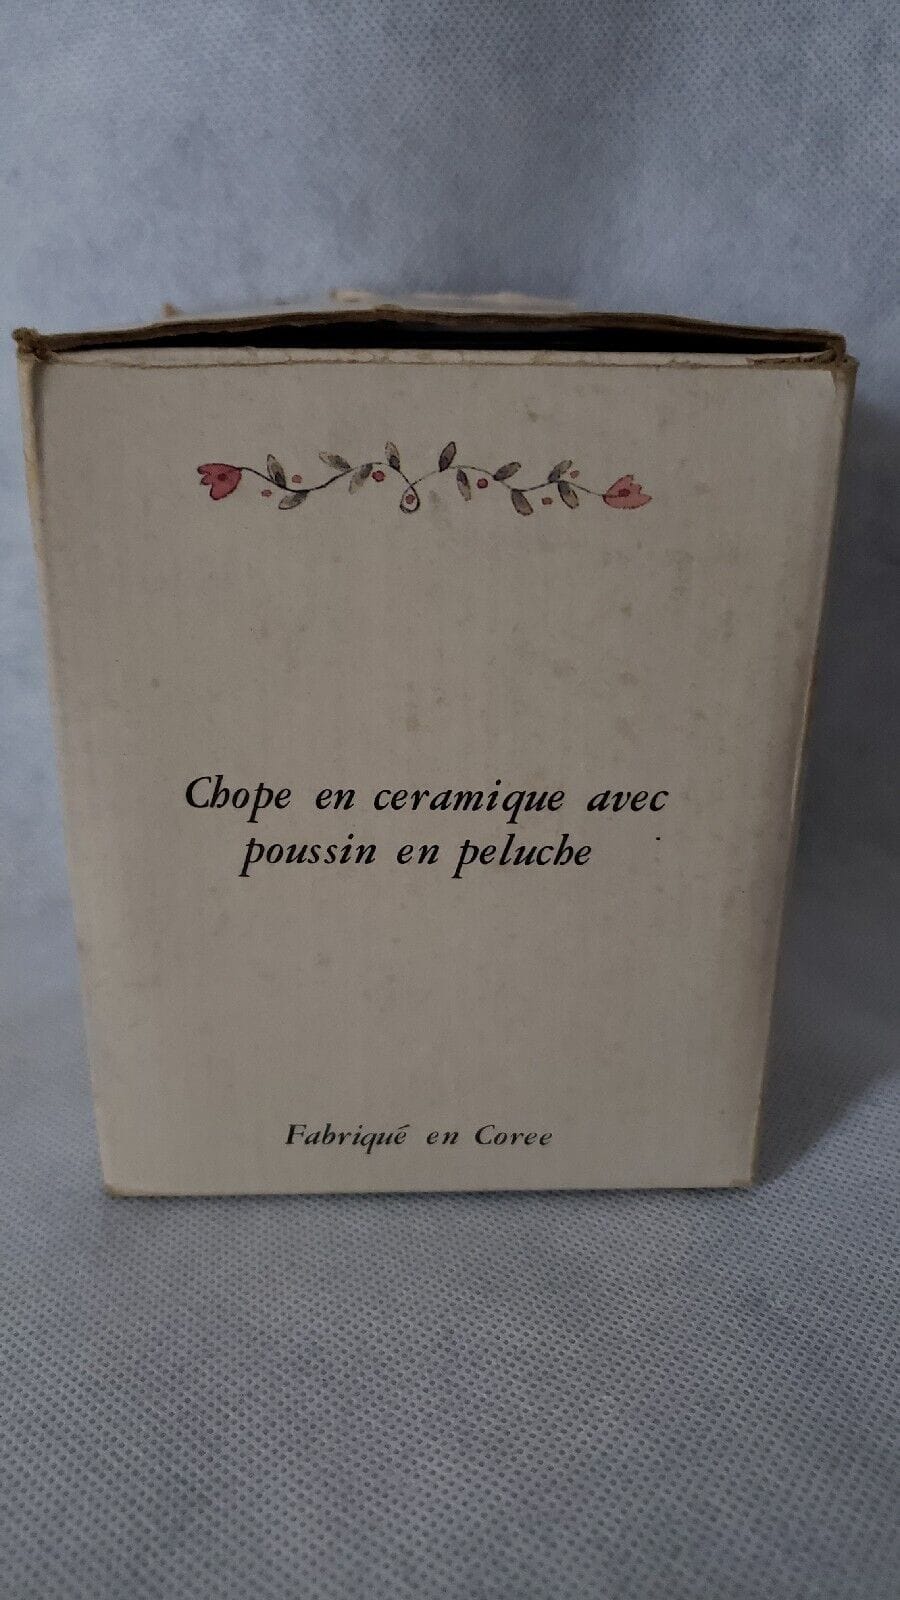 Chope en ceramique avec
poussin en peluche
Fabriqué en Coree